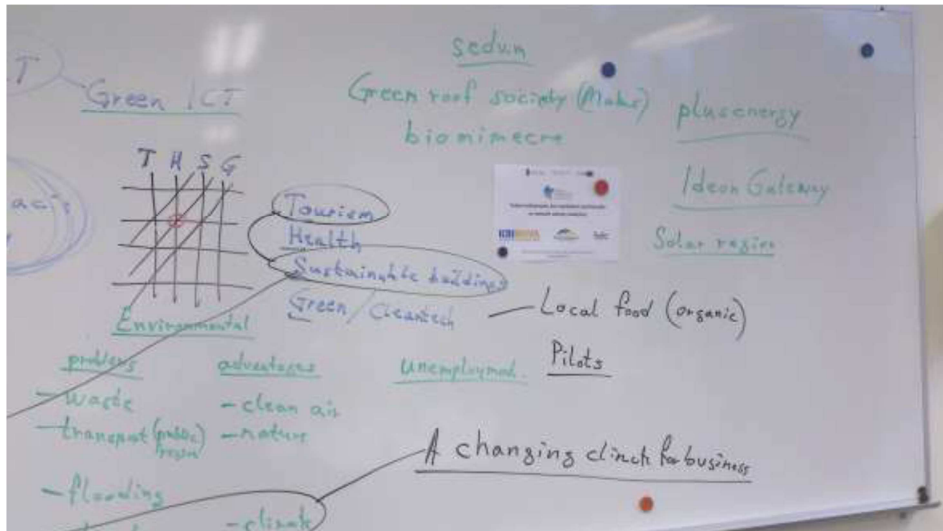 sedum
Green roof society (Malmö)
biomimecre
plusenergy
Ideon Gateway
Solar region
Green ICT
T H S G
Tourism
Health
Sustainable buildings
Green / Cleantech
Local food (organic)
Pilots
Environmental
problems
advantages
- waste
- clean air
- transport (public
- nature
- flooding
- climate
A changing climate for business